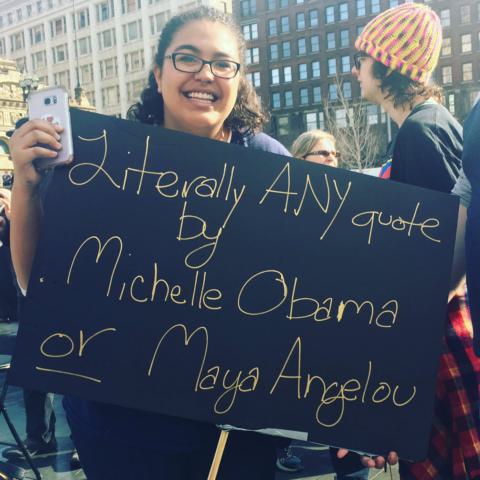 Literally ANY quote
by
Michelle Obama
or Maya Angelou